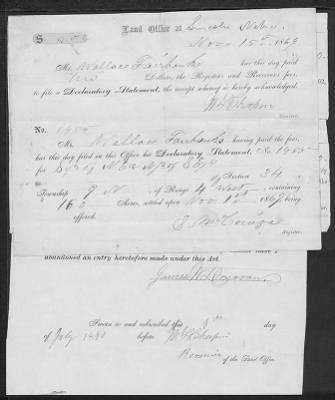 Land Office at Lincoln Nebr.
Nov 15th 1869
Mr. Wallace Fairbanks has this day paid
Two Dollars, the Register and Receivers fees,
to file a Declaratory Statement, the receipt whereof is hereby acknowledged.
No. 1955
Mr. Wallace Fairbanks having paid the fees,
has this day filed in this Office his Declaratory Statement, No 1955
for of Section 24
Township 9 N. of Range 4 West, containing
160 Acres, settled upon Nov 1st 1869 being
offered.
Register.
abandoned an entry heretofore made under this Act.
James
Sworn to and subscribed this day
of July before
Receiver
of the Land Office